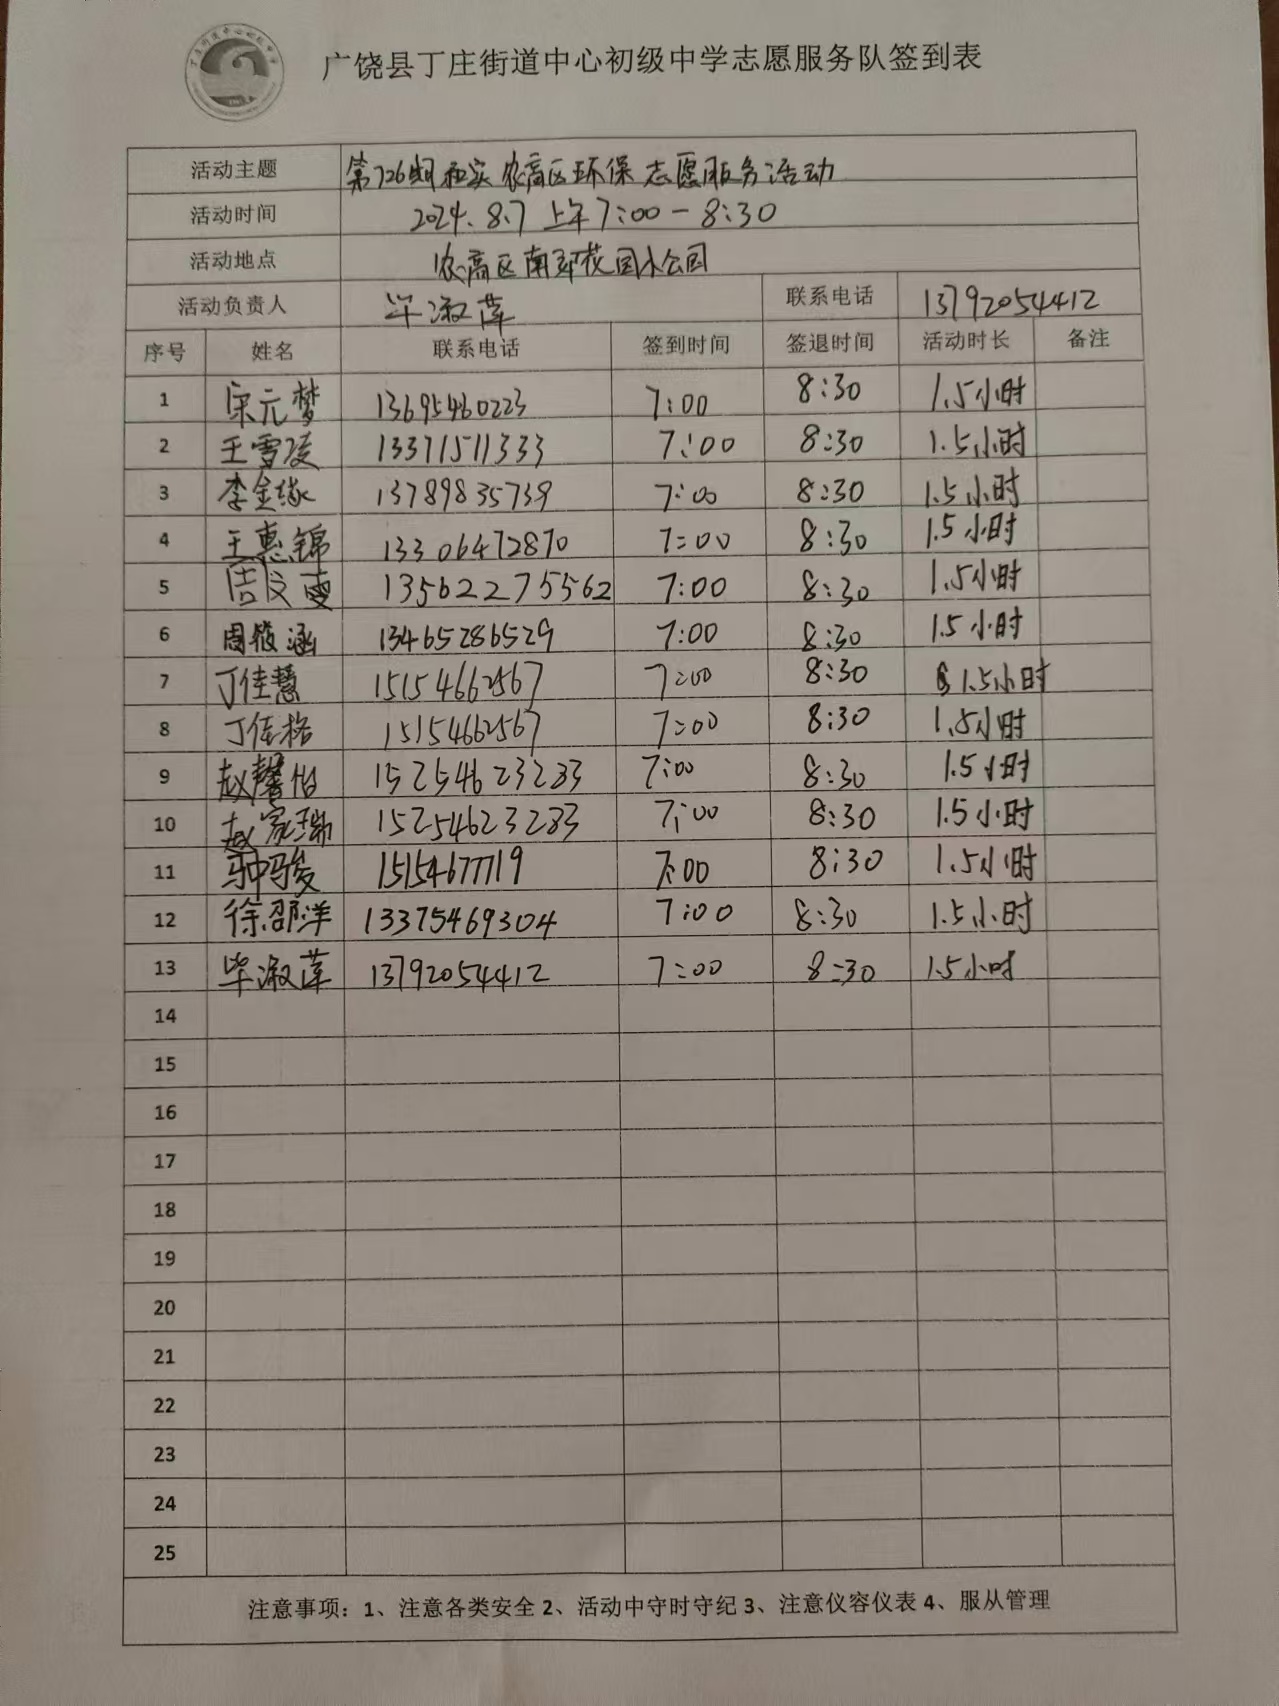 广饶县丁庄街道中心初级中学志愿服务队签到表
活动主题 第726期和实农高区环保志愿服务活动
活动时间 2024.8.7 上午7:00-8:30
活动地点 农高区南郊花园小公园
活动负责人 毕淑莲 联系电话 13792054412
序号 姓名 联系电话 签到时间 签退时间 活动时长 备注
1 宋元梦 13695460223 7:00 8:30 1.5小时
2 王雪凌 13371511333 7:00 8:30 1.5小时
3 李金缘 13789835739 7:00 8:30 1.5小时
4 王惠锦 13306472870 7:00 8:30 1.5小时
5 13562275562 7:00 8:30 1.5小时
6 周筱涵 13465286529 7:00 8:30 1.5小时
7 丁佳慧 15154662567 7:00 8:30 1.5小时
8 丁佳格 15154662567 7:00 8:30 1.5小时
9 赵馨怡 15254623283 7:00 8:30 1.5小时
10 赵家瑞 15254623283 7:00 8:30 1.5小时
11 种骏 15154677719 7:00 8:30 1.5小时
12 徐邵洋 13375469304 7:00 8:30 1.5小时
13 毕淑莲 13792054412 7:00 8:30 1.5小时
14
15
16
17
18
19
20
21
22
23
24
25
注意事项：1、注意各类安全 2、活动中守时守纪 3、注意仪容仪表 4、服从管理